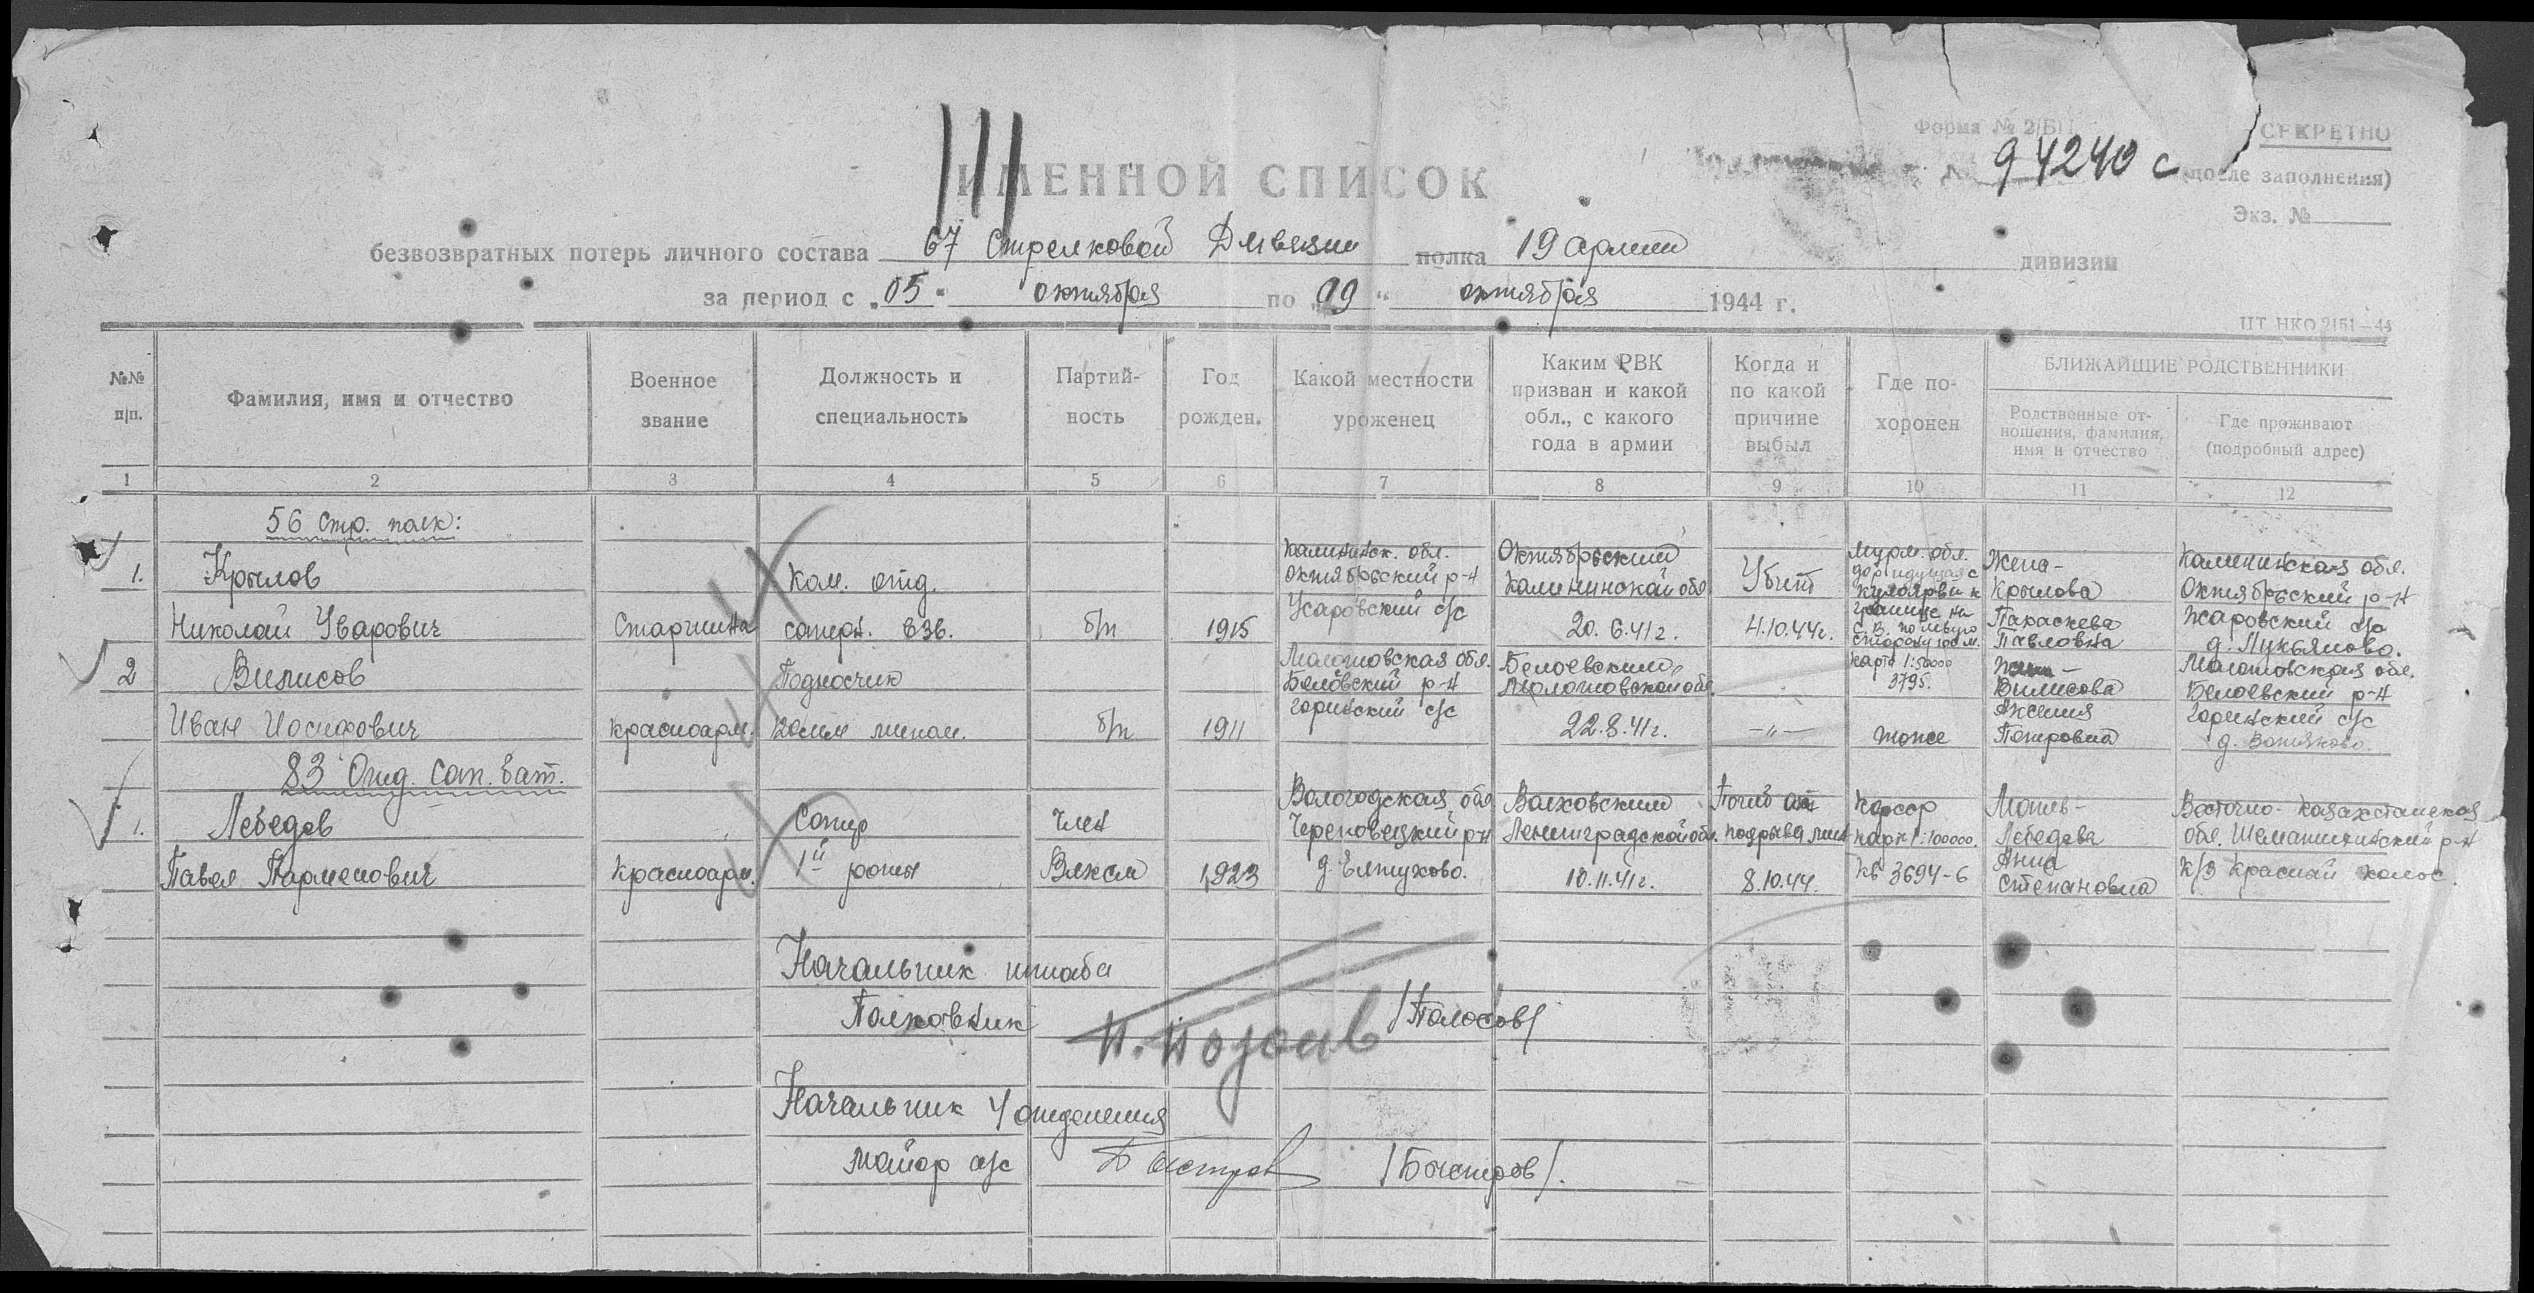 Форма № 2/БП
СЕКРЕТНО
№ 94240 с
(после заполнения)
ИМЕННОЙ СПИСОК
Экз. №
безвозвратных потерь личного состава 67 Стрелковой Дивизии полка 19 армии дивизии
за период с „05" октября по „09" октября 1944 г.
ЦТ НКО 2151—44
№№ п|п.
Фамилия, имя и отчество
Военное звание
Должность и специальность
Партий-ность
Год рожден.
Какой местности уроженец
Каким РВК призван и какой обл., с какого года в армии
Когда и по какой причине выбыл
Где по-хоронен
БЛИЖАЙШИЕ РОДСТВЕННИКИ
Родственные от-ношения, фамилия, имя и отчество
Где проживают (подробный адрес)
1 2 3 4 5 6 7 8 9 10 11 12
56 Стр. полк:
1. Крылов
Николай Уварович
Старшина
Ком. отд.
саперн. взв.
б/п
1915
Калининск. обл.
Октябрьский р-н
Жаровский с/с
Октябрьский
Калининской обл
20.6.41г.
Убит
4.10.44г.
Мурм. обл.
дор. идущая с
границе на
С.В. по левую
сторону 100 м.
карта 1:50000
3795.
Жена-
Крылова
Параскева
Павловна
Калининская обл.
Октябрьский р-н
Жаровский с/с
д. Лукьяново.
2 Вилисов
Иван Иосифович
Красноарм.
Подносчик
б/п
1911
Молотовская обл.
Белоевский р-н
Горинский с/с
Белоевским
Молотовской обл.
22.8.41г.
—"—
тоже
Вилисова
Аксения
Петровна
Молотовская обл.
Белоевский р-н
Горинский с/с
83 Отд. Сап. бат.
1. Лебедев
Павел Парменович
Красноарм.
Сапер
1й роты
Член
Влксм
1923
Вологодская обл
Череповецкий р-н
д. Елтухово.
Волховским
Ленинградской обл.
10.11.41г.
Погиб от
подрыва мин
8.10.44.
Кфсср
карт 1:100000.
Кв 3694-6
Мать-
Лебедева
Анна
Степановна
Восточно-Казахстанская
обл. Шемонаихинский р-н
К/з Красный колос.
Начальник штаба
Полковник
/Полосов/
Начальник 4 отделения
Майор а/с
Быстров
/Быстров/.